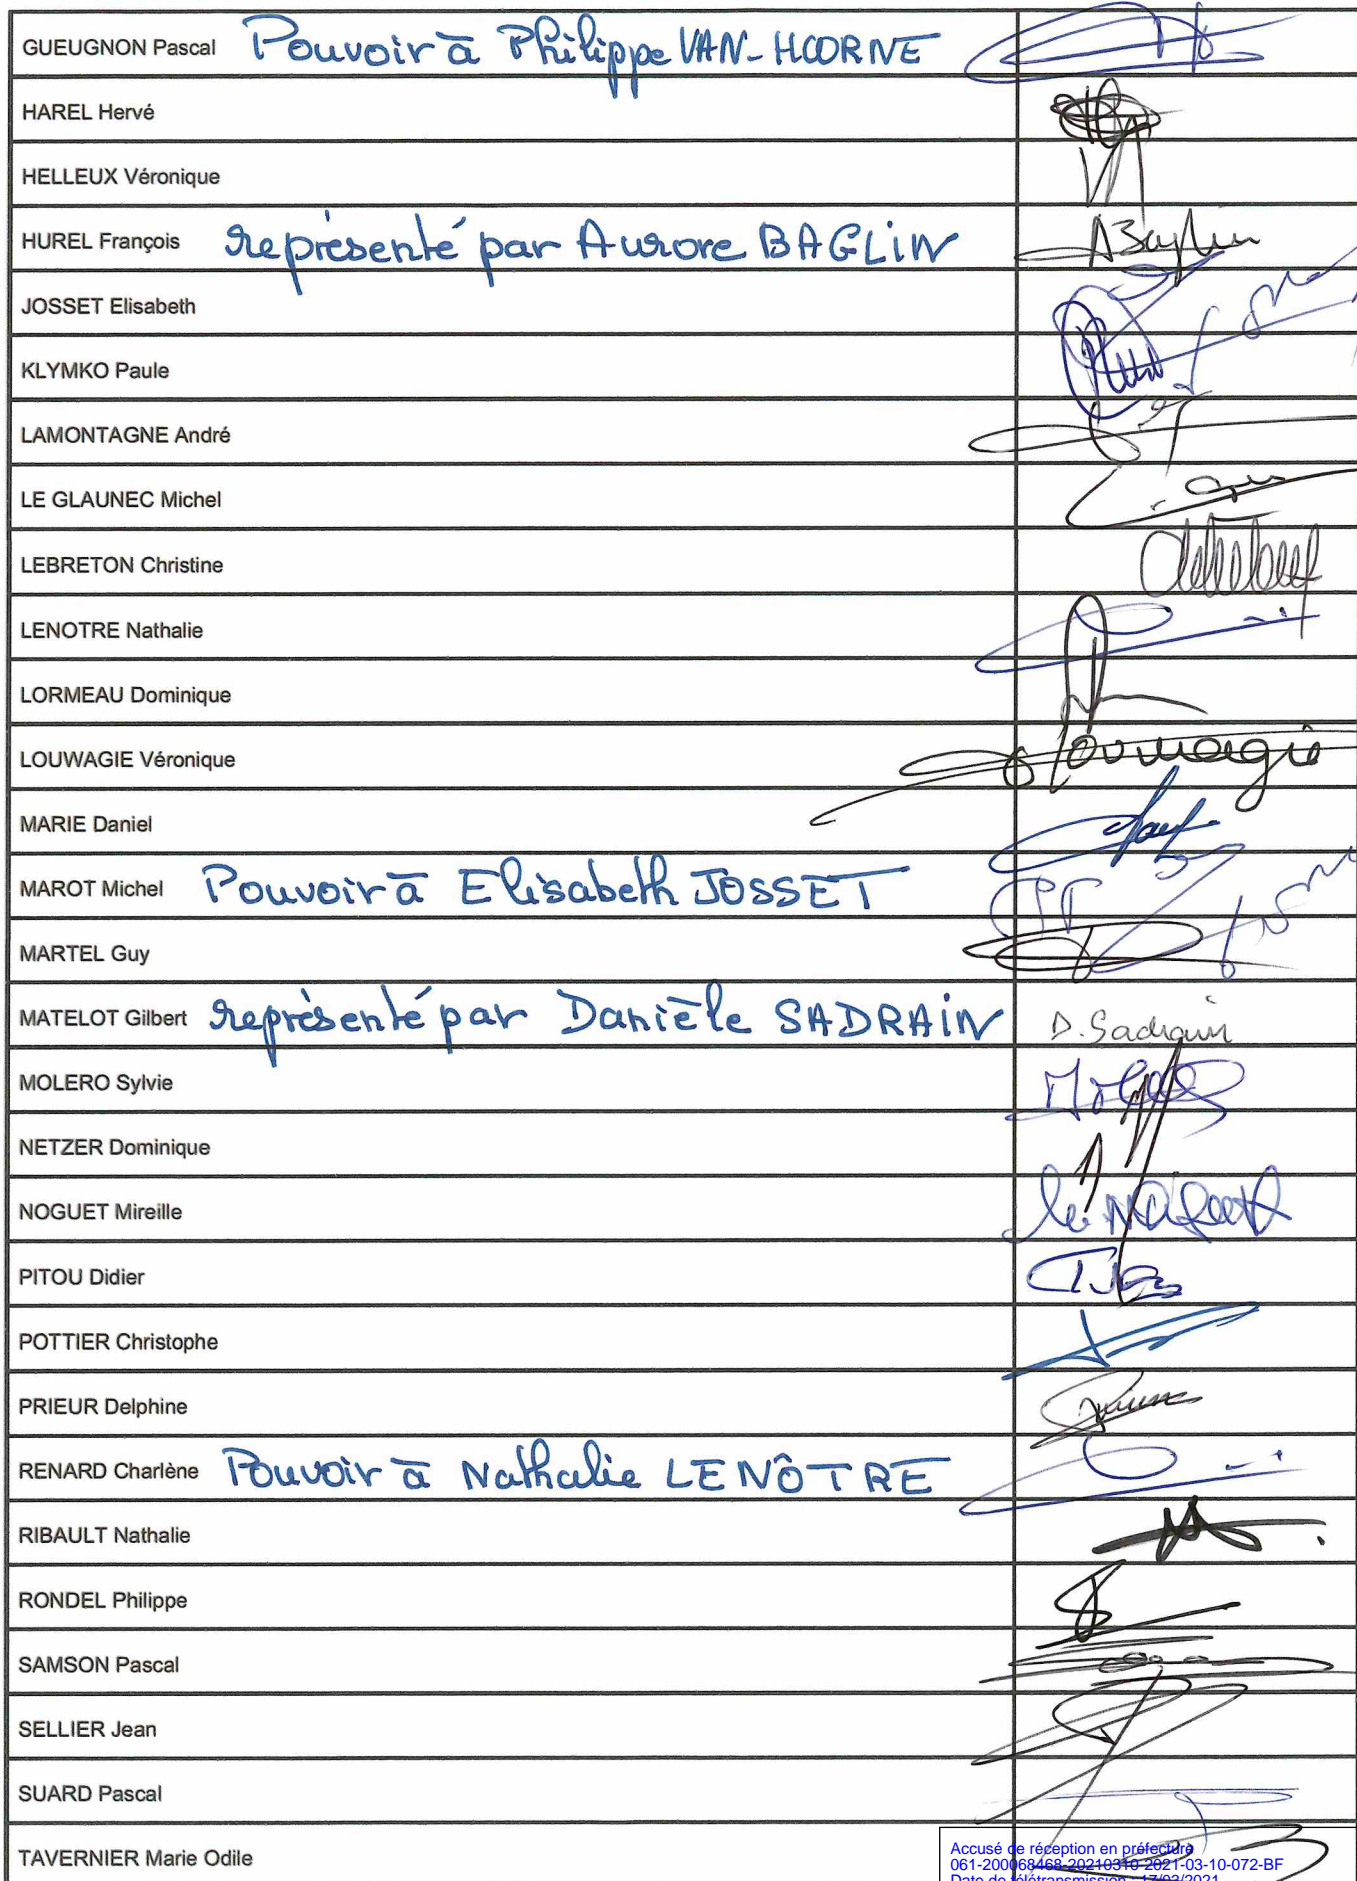 GUEUGNON Pascal Pouvoir à Philippe VAN-HOORNE
HAREL Hervé
HELLEUX Véronique
HUREL François représenté par Aurore BAGLIN
JOSSET Elisabeth
KLYMKO Paule
LAMONTAGNE André
LE GLAUNEC Michel
LEBRETON Christine
LENOTRE Nathalie
LORMEAU Dominique
LOUWAGIE Véronique
MARIE Daniel
MAROT Michel Pouvoir à Elisabeth JOSSET
MARTEL Guy
MATELOT Gilbert représenté par Danièle SADRAIN D. Sadrain
MOLERO Sylvie
NETZER Dominique
NOGUET Mireille
PITOU Didier
POTTIER Christophe
PRIEUR Delphine
RENARD Charlène Pouvoir à Nathalie LENÔTRE
RIBAULT Nathalie
RONDEL Philippe
SAMSON Pascal
SELLIER Jean
SUARD Pascal
TAVERNIER Marie Odile
Accusé de réception en préfecture
061-200068468-20210310-2021-03-10-072-BF
Date de télétransmission : 17/03/2021